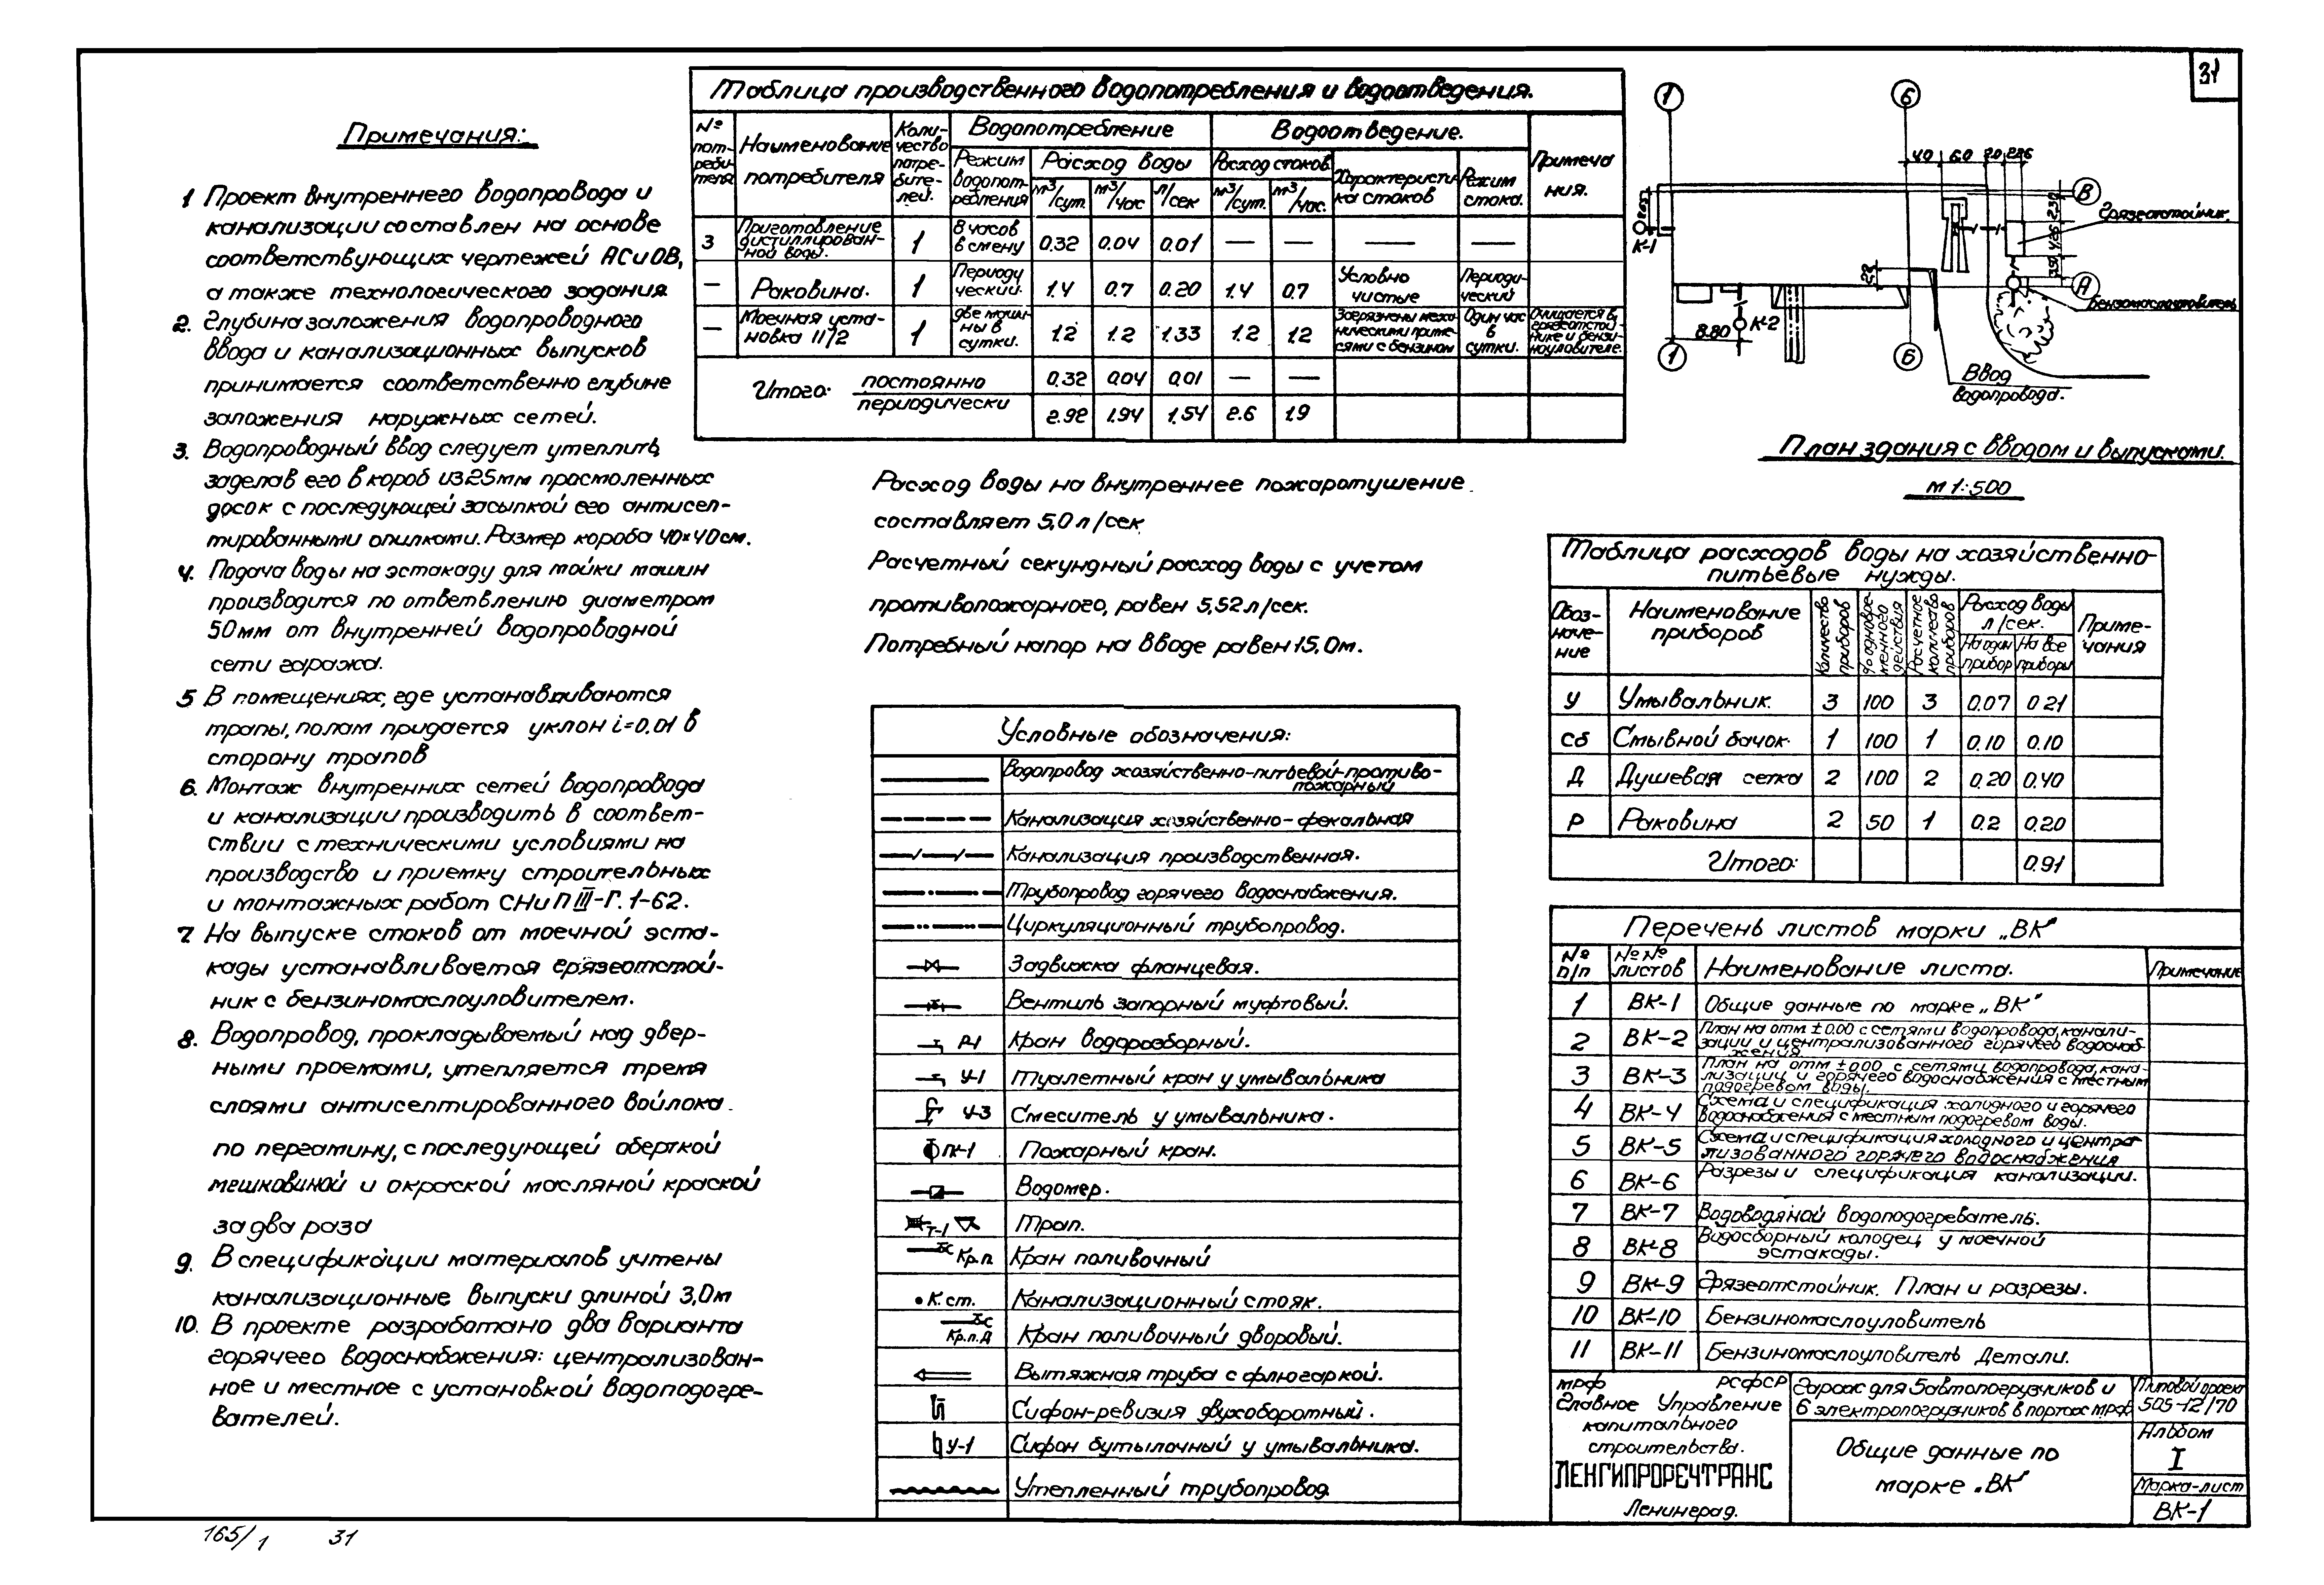 31
Примечания:
1 Проект внутреннего водопровода и
канализации составлен на основе
соответствующих чертежей АС и ОВ,
а также технологического задания
2. Глубина заложения водопроводного
ввода и канализационных выпусков
принимается соответственно глубине
заложения наружных сетей.
3. Водопроводный ввод следует утеплить,
заделав его в короб из 25мм просмоленных
досок с последующей засыпкой его антисеп-
тированными опилками. Размер короба 40×40см.
4. Подача воды на эстакаду для мойки машин
производится по ответвлению диаметром
50мм от внутренней водопроводной
сети гаража.
5 В помещениях, где устанавливаются
трапы, полам придается уклон i=0.01 в
сторону трапов
6. Монтаж внутренних сетей водопровода
и канализации производить в соответ-
ствии с техническими условиями на
производство и приемку строительных
и монтажных работ СНиП III-Г. 1-62.
7. На выпуске стоков от моечной эста-
кады устанавливается грязеотстой-
ник с бензиномаслоуловителем.
8. Водопровод, прокладываемый над двер-
ными проемами, утепляется тремя
слоями антисептированного войлока
по пергамину, с последующей оберткой
мешковиной и окраской масляной краской
за два раза
9. В спецификации материалов учтены
канализационные выпуски длиной 3,0м
10. В проекте разработано два варианта
горячего водоснабжения: централизован-
ное и местное с установкой водоподогре-
вателей.
Таблица производственного водопотребления и водоотведения.
№ пот-реби-теля Наименование потребителя Коли-чество потре-бите-лей. Водопотребление Водоотведение. Примеча ния.
Режим водопот-ребления Расход воды Расход стоков Характеристи-ка стоков Режим стока.
м³/сут. м³/час л/сек м³/сут. м³/час.
3 Приготовление дистиллирован-ной воды. 1 8 часов в смену 0.32 0.04 0.01 — — — —
— Раковина. 1 Периоди ческий. 1.4 0.7 0.20 1.4 0.7 Условно чистые Периоди-ческий
— Моечная уста-новка 11/2 1 две маши-ны в сутки. 1.2 1.2 1.33 1.2 1.2 Загрязнены меха-ническими приме-сями с бензином Один час в сутки. Очищается в грязеотстой-нике и бензи-ноуловителе.
Итого: постоянно 0.32 0.04 0.01 — —
периодически 2.92 1.94 1.54 2.6 1.9
Расход воды на внутреннее пожаротушение
составляет 5,0 л/сек
Расчетный секундный расход воды с учетом
противопожарного, равен 5,52 л/сек.
Потребный напор на вводе равен 15,0м.
Условные обозначения:
Водопровод хозяйственно-питьевой-противо-
пожарный
Канализация хозяйственно-фекальная
Канализация производственная.
Трубопровод горячего водоснабжения.
Циркуляционный трубопровод.
Задвижка фланцевая.
Вентиль запорный муфтовый.
Р-1 Кран водоразборный.
У-1 Туалетный кран у умывальника
У-3 Смеситель у умывальника.
ПК-1 Пожарный кран.
Водомер.
Т-1 Трап.
Кр.п. Кран поливочный
К.ст. Канализационный стояк.
Кр.п.д Кран поливочный дворовый.
Вытяжная труба с флюгаркой.
Сифон-ревизия двухоборотный.
У-1 Сифон бутылочный у умывальника.
Утепленный трубопровод.
1 6
4.0 6.0 2.0
В
Грязеотстойник.
К-1
2.30
4.26
3.50
А
Бензомаслоуловитель
К-2
8.80
1 6
Ввод
водопровода.
План здания с вводом и выпусками.
М 1:500
Таблица расходов воды на хозяйственно-
питьевые нужды.
Обоз-наче-ние Наименование приборов Количество приборов % одновре-менного действия Расчетное количество приборов Расход воды л/сек. Приме-чания
На один прибор На все приборы
У Умывальник. 3 100 3 0.07 0.21
Сб Смывной бачок. 1 100 1 0.10 0.10
Д Душевая сетка 2 100 2 0.20 0.40
Р Раковина 2 50 1 0.2 0.20
Итого: 0.91
Перечень листов марки „ВК"
№ п/п №№ листов Наименование листа. Примечание
1 ВК-1 Общие данные по марке „ВК"
2 ВК-2 План на отм ±0.00 с сетями водопровода, канали-
зации и централизованного горячего водоснаб-
жения
3 ВК-3 План на отм ±0.00 с сетями водопровода, кана-
лизации и горячего водоснабжения с местным
подогревом воды.
4 ВК-4 Схема и спецификация холодного и горячего
водоснабжения с местным подогревом воды.
5 ВК-5 Схема и спецификация холодного и центра-
лизованного горячего водоснабжения
6 ВК-6 Разрезы и спецификация канализации.
7 ВК-7 Водоводяной водоподогреватель.
8 ВК-8 Водосборный колодец у моечной
эстакады.
9 ВК-9 Грязеотстойник. План и разрезы.
10 ВК-10 Бензиномаслоуловитель
11 ВК-11 Бензиномаслоуловитель Детали.
МРФ РСФСР
Главное Управление
капитального
строительства.
ЛЕНГИПРОРЕЧТРАНС
Ленинград.
Гараж для 5 автопогрузчиков и
6 электропогрузчиков в портах МРФ
Общие данные по
марке „ВК"
Типовой проект
505-12/70
Альбом
I
Марка-лист
ВК-1
165/1 31